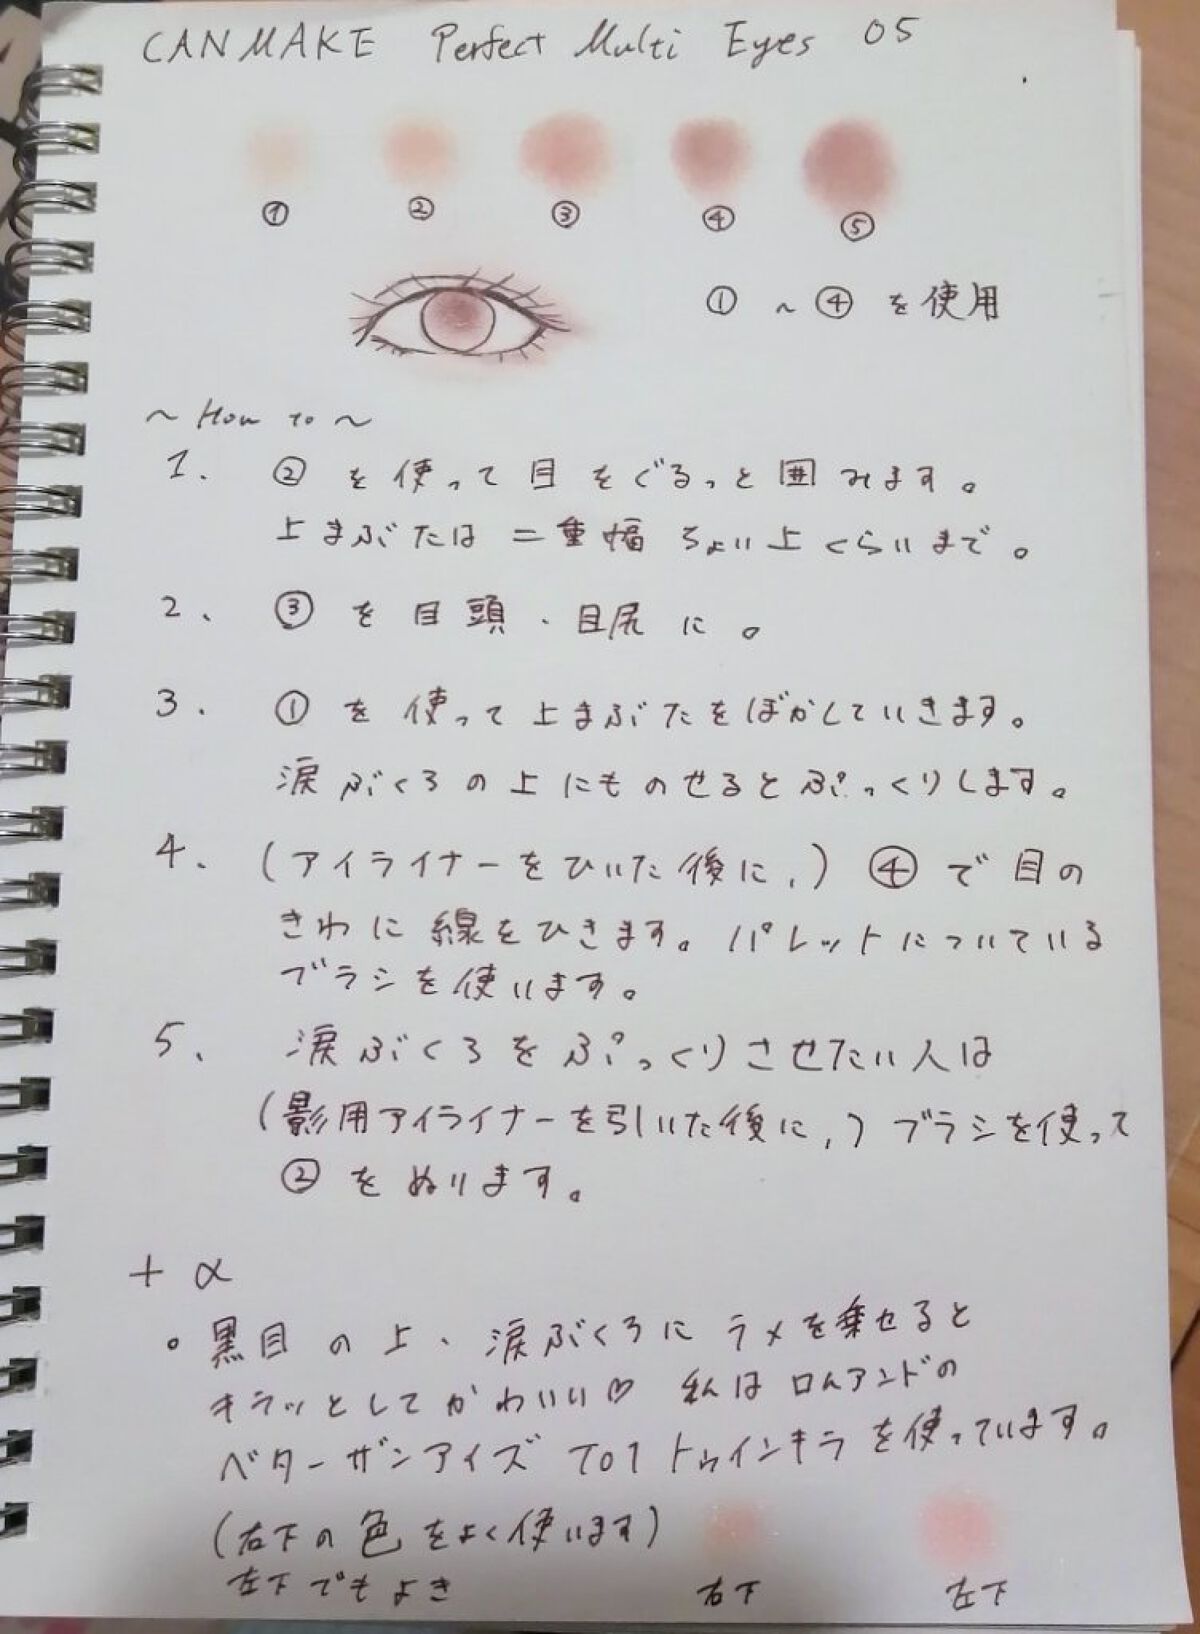 CANMAKE Perfect Multi Eyes 05
① ② ③ ④ ⑤
①~④を使用
~How to~
1. ②を使って目をぐるっと囲みます。
上まぶたは二重幅ちょい上くらいまで。
2. ③を目頭・目尻に。
3. ①を使って上まぶたをぼかしていきます。
涙ぶくろの上にものせるとぷっくりします。
4. (アイライナーをひいた後に、)④で目の
きわに線をひきます。パレットについている
ブラシを使います。
5. 涙ぶくろをぷっくりさせたい人は
(影用アイライナーを引いた後に、)ブラシを使って
②をぬります。
+α
。黒目の上・涙ぶくろにラメを乗せると
キラッとしてかわいい♡ 私はロムアンドの
ベターザンアイズ T01 トゥインキラを使っています。
(右下の色をよく使います)
左下でもよき
右下 左下